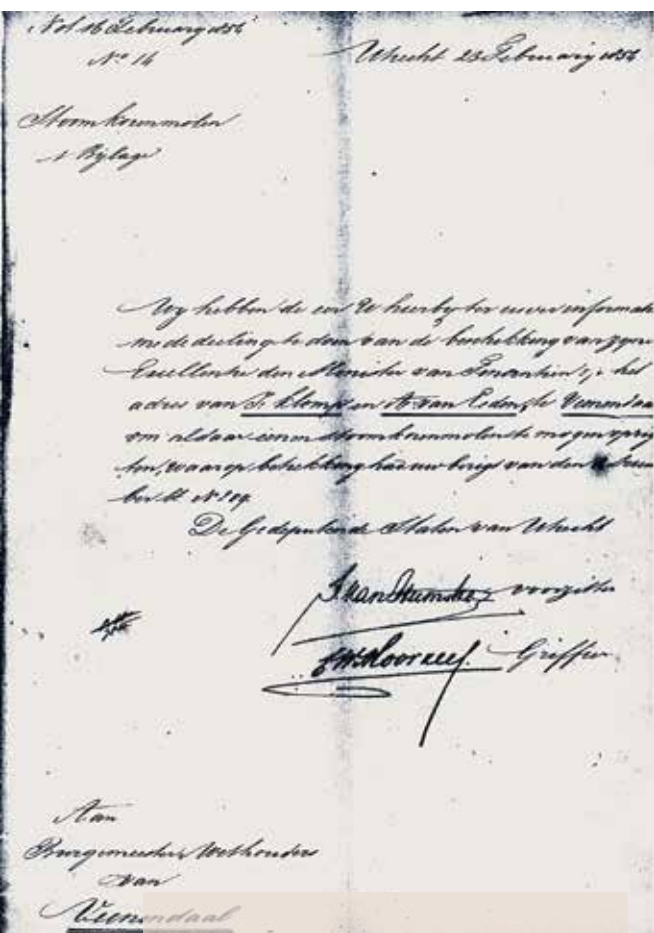 Not 16 Februarij 1854
No 14
Utrecht 23 Februarij 1854
Stoomkorenmolen
1 Bijlage
Wij hebben de eer U hierbij ter uwer informatie
mededeeling te doen van de beschikking van Zijne
Excellentie den Minister van Financien, op het
adres van J. Klomp en A. van Eeden, te Veenendaal
om aldaar eenen stoomkorenmolen te mogen oprig
ten, waarop betrekking had uw berigt van den
ber ll No 109.
De Gedeputeerde Staten van Utrecht
voorzitter
Griffier
Aan
Burgemeester & Wethouders
van
Veenendaal